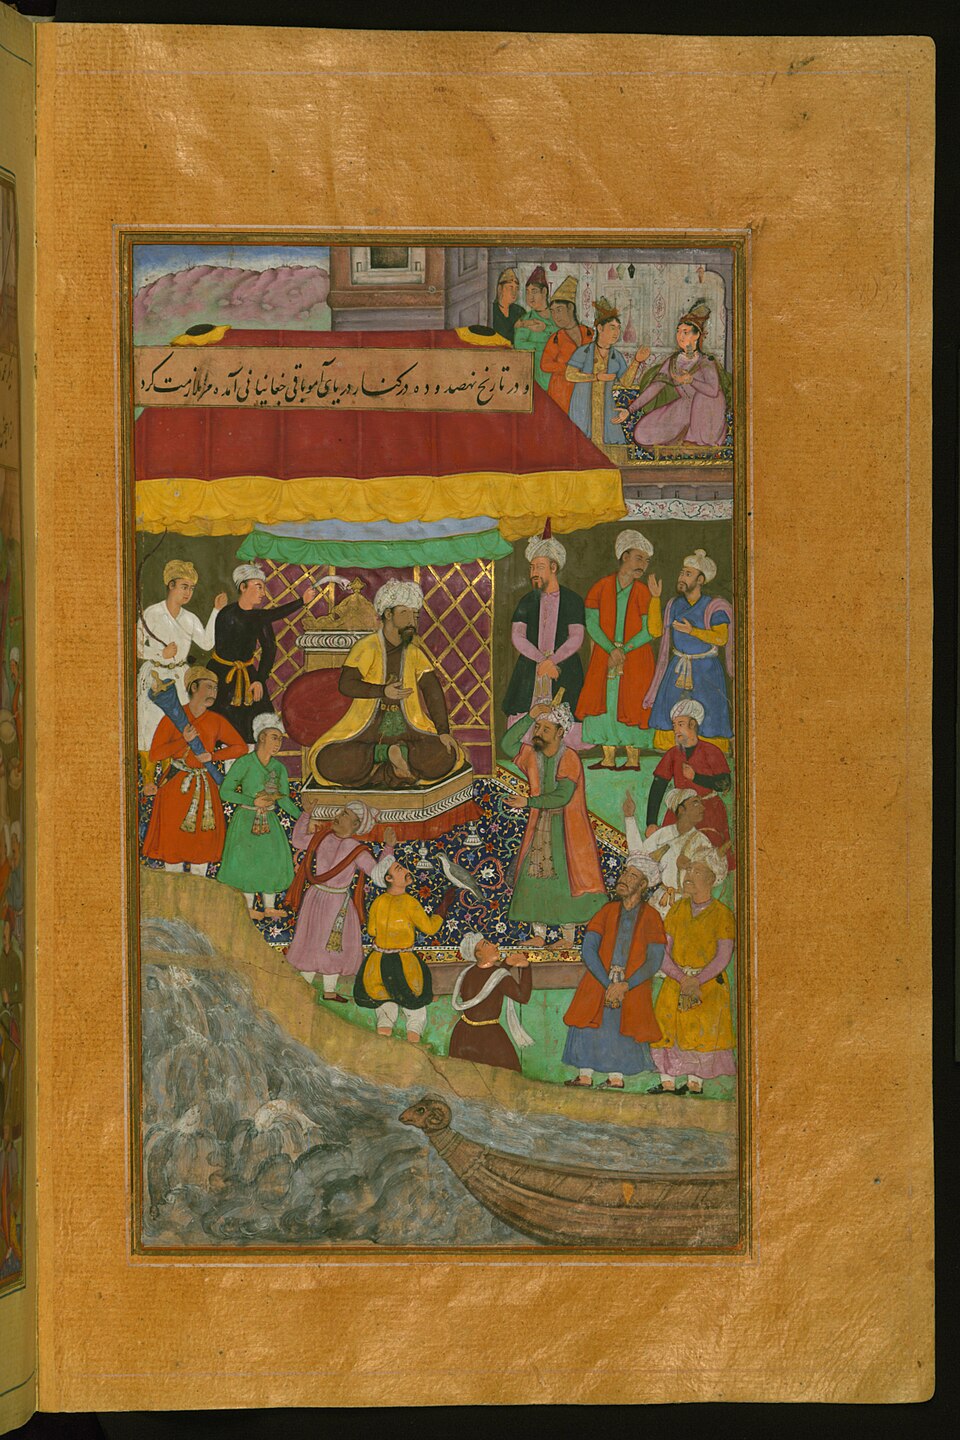 و در تاریخ نهصد و ده در کنار دریای آمو باقی چغانیانی آمده مرا ملازمت کرد